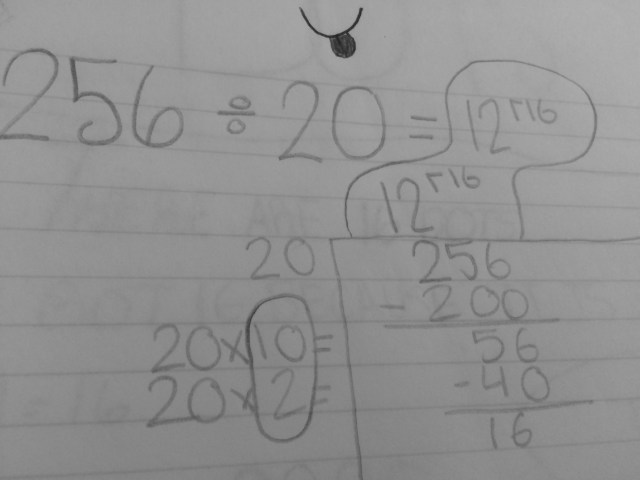 256 ÷ 20 = 12 r16
12 r16
20 256
- 200
20 × 10 = 56
20 × 2 = - 40
16